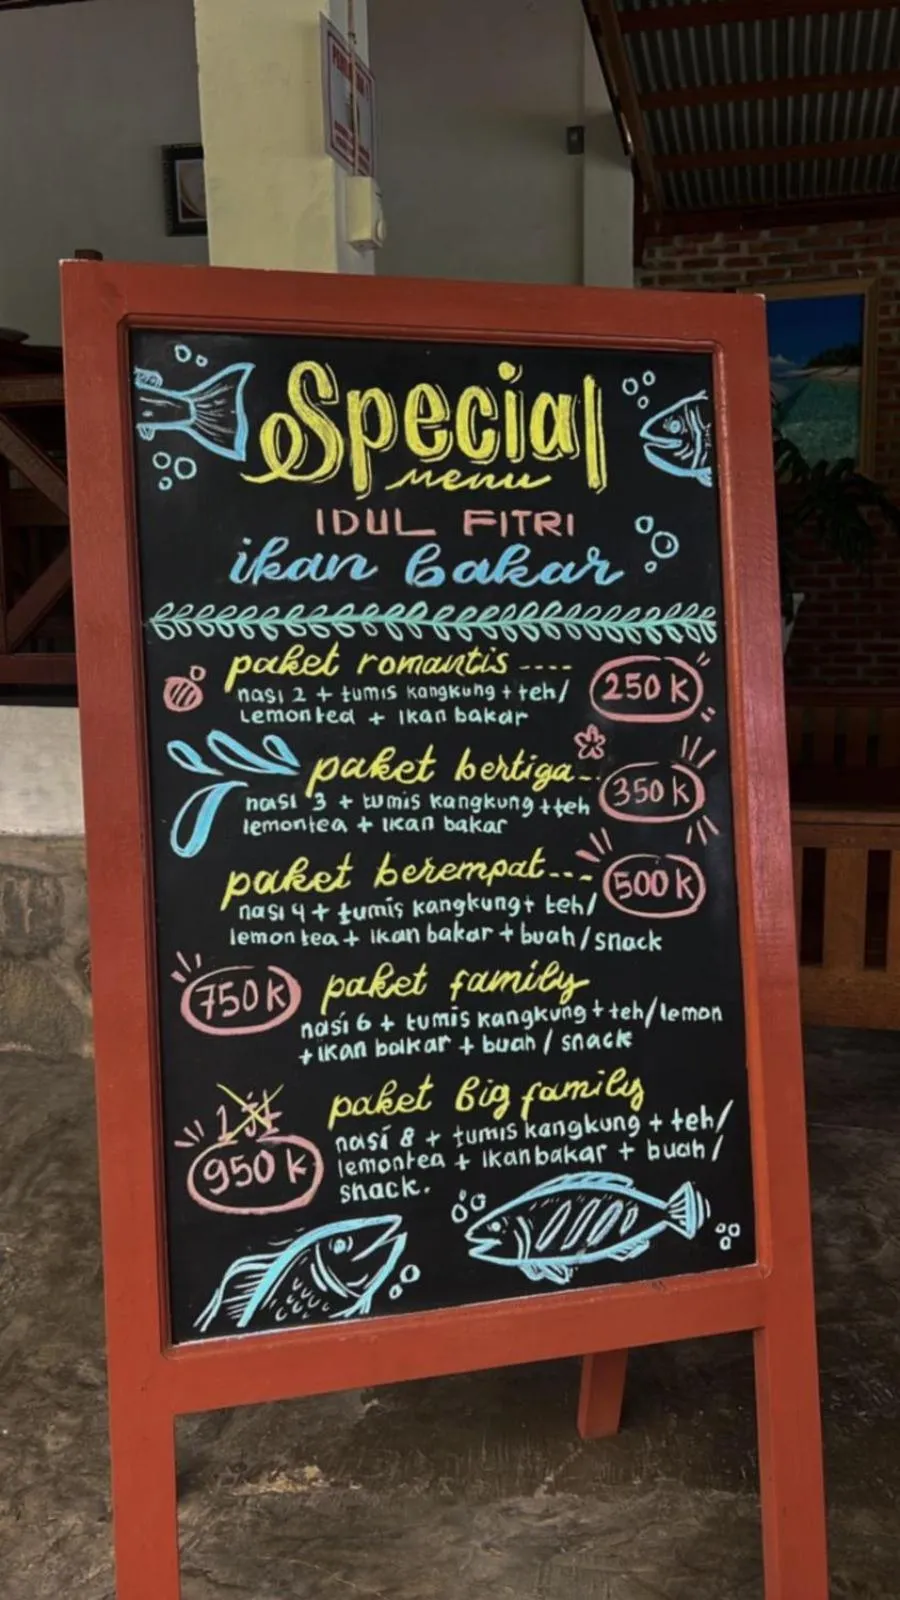 Special
menu
IDUL FITRI
ikan bakar
paket romantis ----
250 K
nasi 2 + tumis kangkung + teh/
Lemontea + Ikan bakar
paket bertiga--
350 K
nasi 3 + tumis kangkung + teh
lemontea + ikan bakar
paket berempat---
500 K
nasi 4 + tumis kangkung + teh/
lemon tea + ikan bakar + buah / snack
750 K
paket family
nasi 6 + tumis kangkung + teh/lemon
+ ikan bakar + buah / snack
paket Big family
1 Jt
950 K
nasi 8 + tumis kangkung + teh/
lemontea + ikan bakar + buah /
snack.